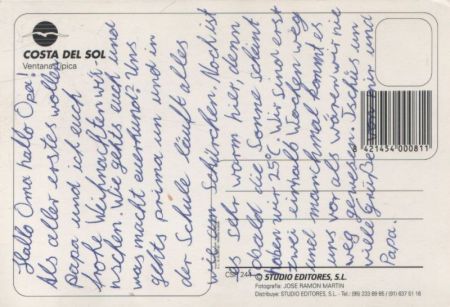 COSTA DEL SOL
Ventana típica
Hallo Oma hallo Opa!
Als aller erstes wollen
papa und ich euch
frohe Weihnachten wün-
schen. Wie gehts euch und
was macht euer Hund? Uns
gehts prima un und in
der Schule läuft alles
wie am Schürchen. Noch ist
es sehr warm hier, denn
sobald die Sonne scheint
haben wir 25°C. Wir sind erst
zwei einhalb Wochen weg
und manchmal kommt es
uns vor als wären wir nie
weg gewesen. Tschüs und
viele Grüße von mir und
Papa.
8 421454 000811
C.S. 244
© STUDIO EDITORES, S.L.
Fotografía: JOSE RAMON MARTIN
Distribuye: STUDIO EDITORES, S.L. - Tel.: (95) 233 89 95 / (91) 637 51 16